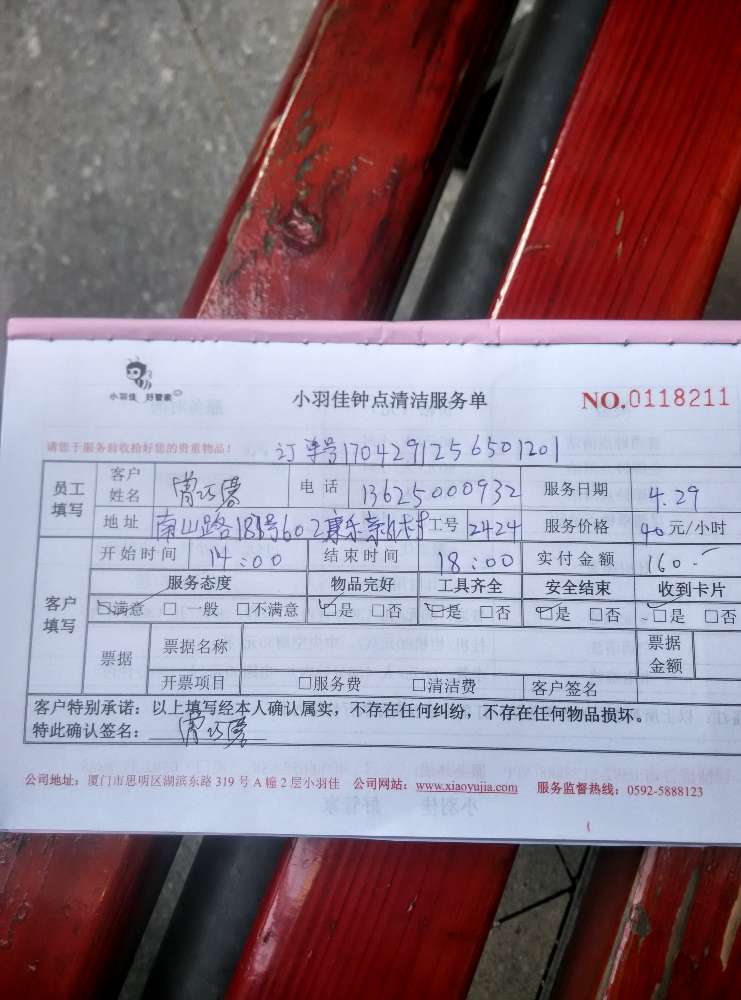 小羽佳 好管家
小羽佳钟点清洁服务单
NO.0118211
请您于服务前收拾好您的贵重物品!
订单号1704291256501201
员工填写 客户姓名 电话 13625000932 服务日期 4.29
地址 南山路 号602 工号 2424 服务价格 40元/小时
客户填写 开始时间 14:00 结束时间 18:00 实付金额 160.-
服务态度 物品完好 工具齐全 安全结束 收到卡片
☑满意 □一般 □不满意 ☑是 □否 ☑是 □否 ☑是 □否 ☑是 □否
票据 票据名称 票据金额
开票项目 □服务费 □清洁费 客户签名
客户特别承诺:以上填写经本人确认属实,不存在任何纠纷,不存在任何物品损坏。
特此确认签名:
公司地址:厦门市思明区湖滨东路 319 号 A 幢 2 层小羽佳 公司网站:www.xiaoyujia.com 服务监督热线:0592-5888123